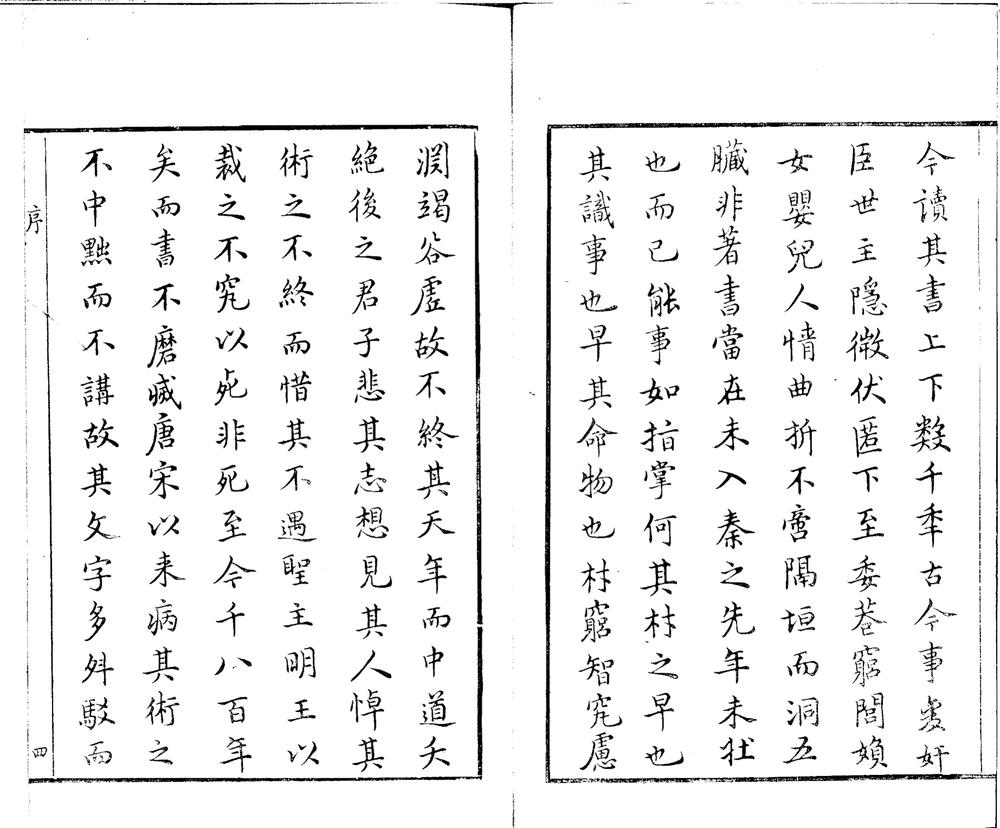 今讀其書上下數千年古今事變奸
臣世主隱微伏匿下至委巷窮閻嬪
女嬰兒人情曲折不啻隔垣而洞五
臟非著書當在未入秦之先年未壯
也而已能事如指掌何其材之早也
其識事也早其命物也材窮智究慮
淵竭谷虛故不終其天年而中道夭
絕後之君子悲其志想見其人悼其
術之不終而惜其不遇聖主明王以
裁之不究以死非死至今千八百年
矣而書不磨滅唐宋以来病其術之
不中黜而不講故其文字多舛駁而
序
四